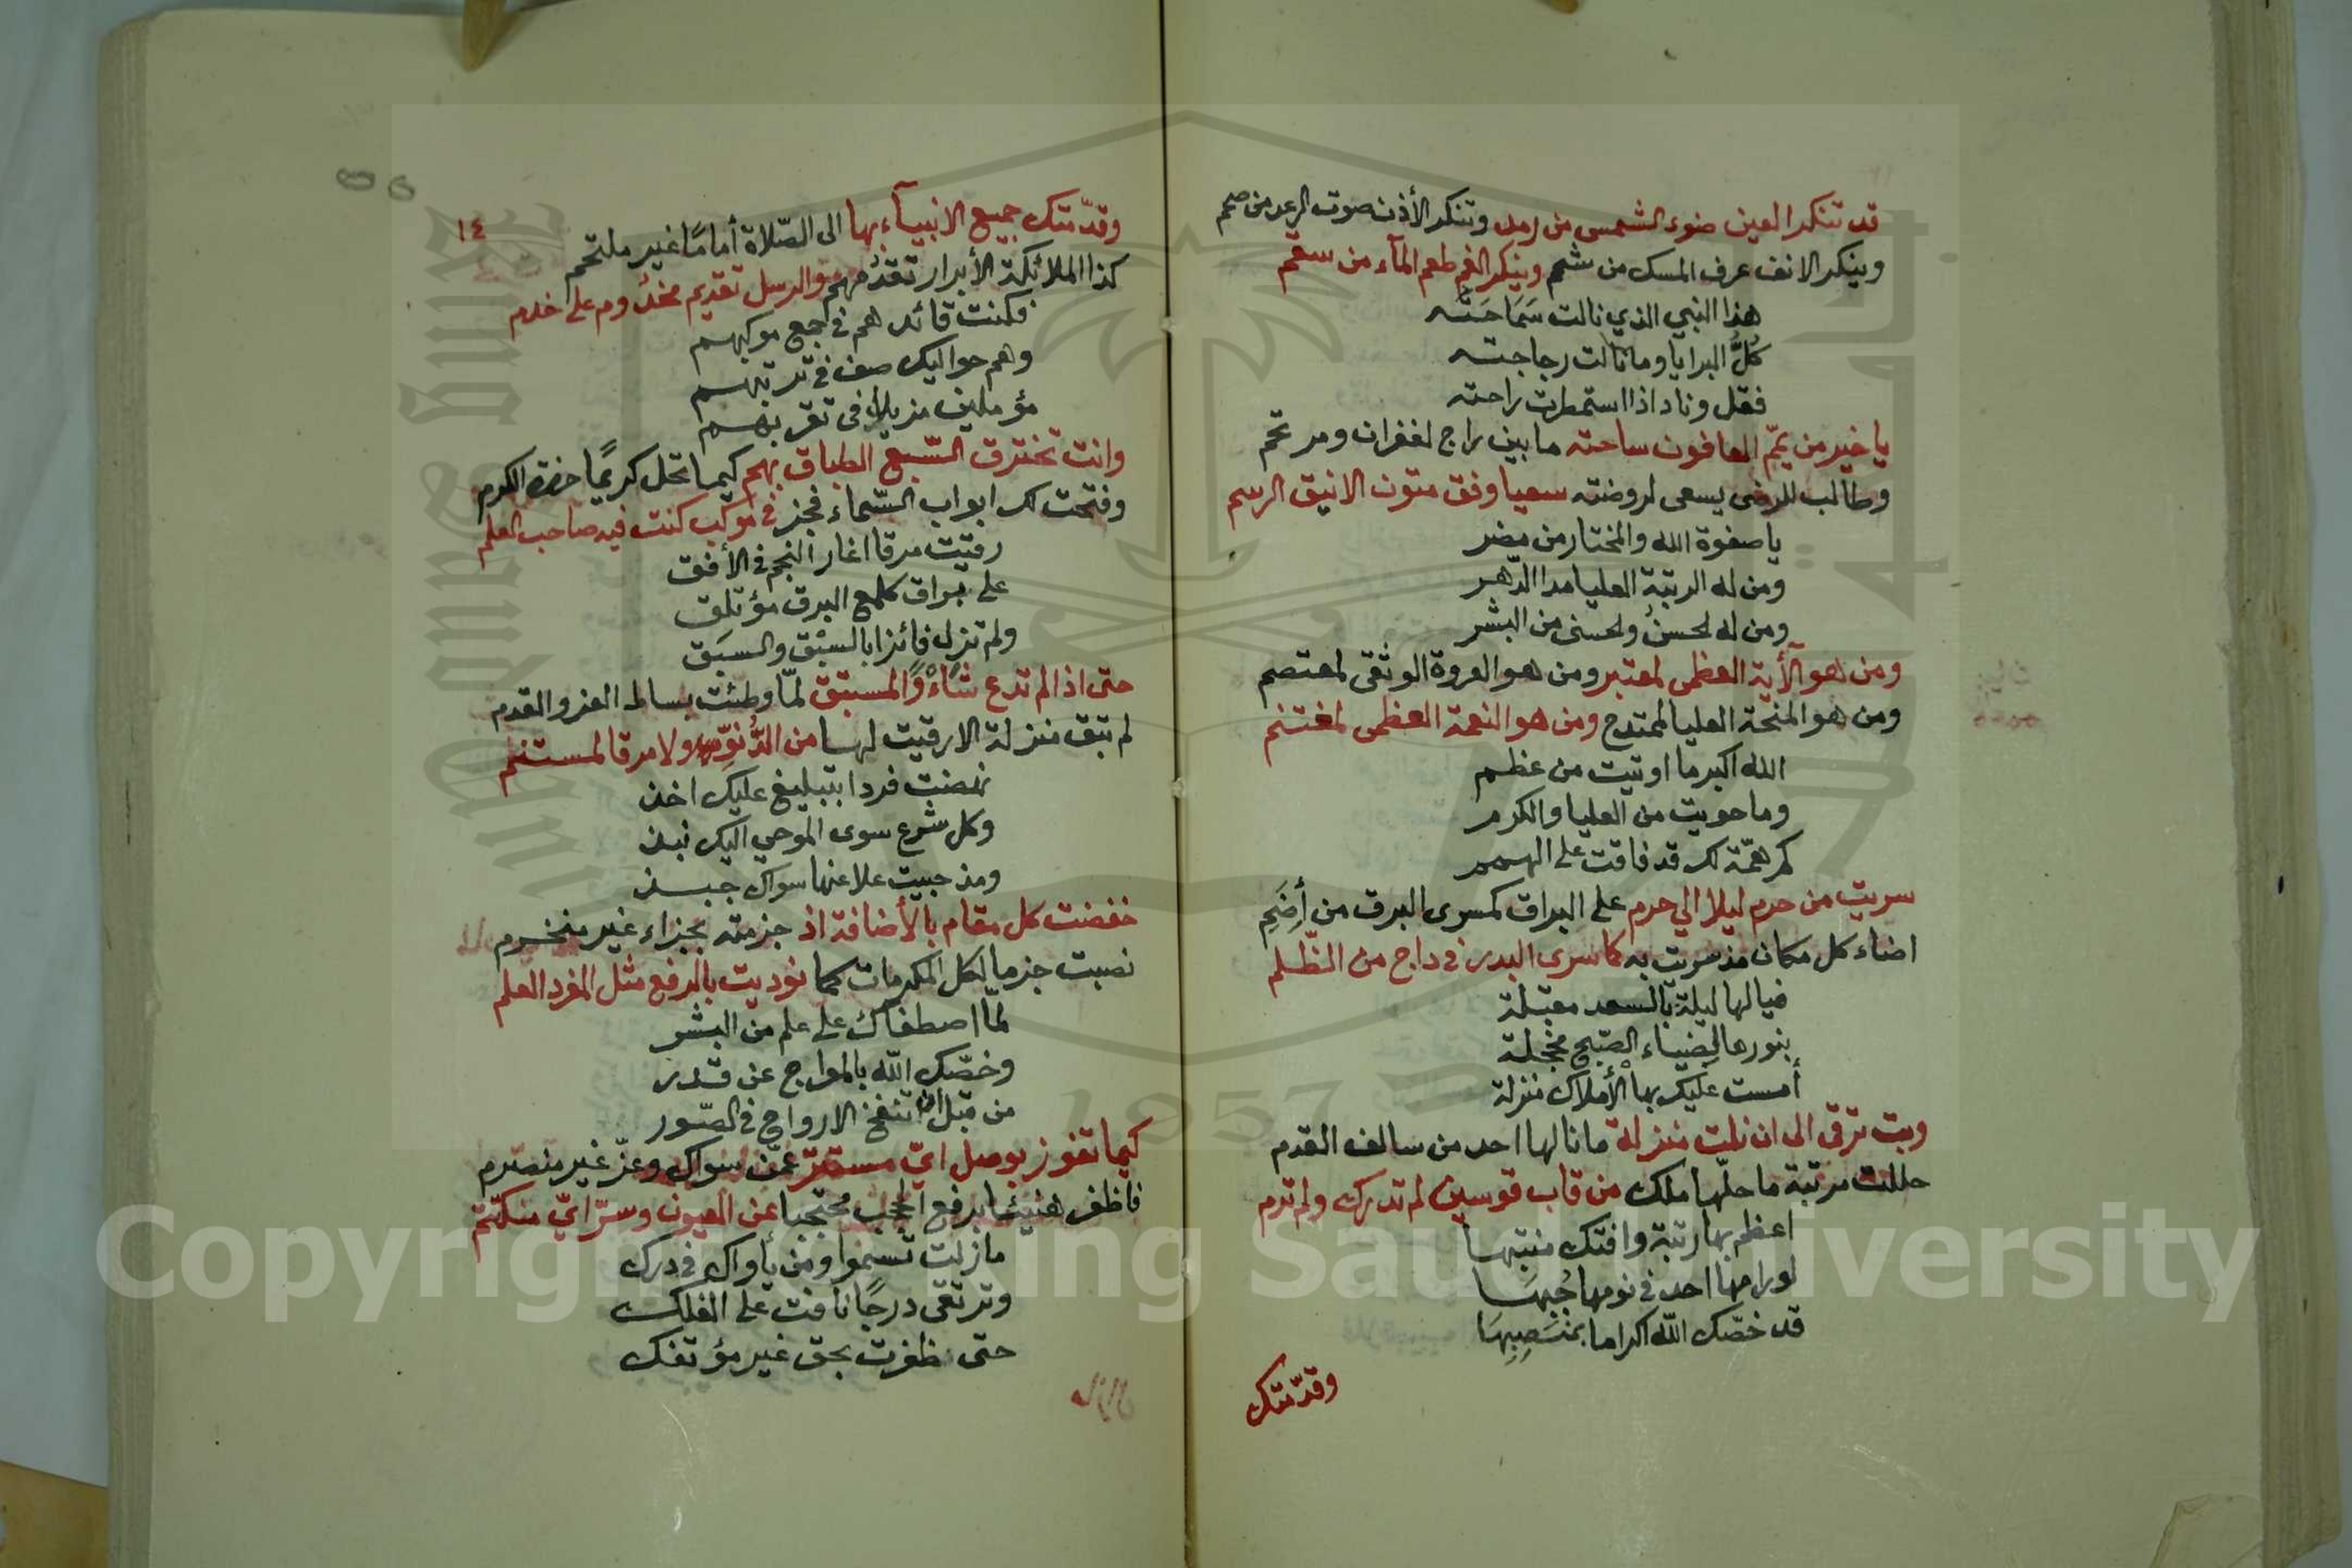 قد تنكر العين ضوء الشمس من رمد وتنكر الأذن صوت الرعد من صمم
وينكر الانف عرف المسك من شمم وينكر الفم طعم المآء من سقم
هذا النبي الذي نالت سَمَاحَتُه
كلُّ البرايا وما نالت رجاجته
فقل وناد اذا استمطرت راحته
يا خير من يمّم العافون ساحته ما بين راج لغفران ومرتحم
وطالب للرضى يسعى لروضته سعيا وفق متون الانيق الرسم
يا صفوة الله والمختار من مضر
ومن له الرتبة العليا مدا الدّهر
ومن له لحسنُ ولحسنى من البشر
ومن هو الآية العظمى لمعتبر ومن هو العروة الوثقى لمعتصم
ومن هو المنحة العليا لممتدح ومن هو النعمة العظمى لمغتنم
الله اكبر ما اوتيت من عظم
وما حويت من العليا والكرم
كم همّة لك قد فاقت على الهمم
سريت من حرم ليلا الي حرم على البراق كمسرى البرق من أضَمِ
اضاء كل مكان مذ سريت به كما سرى البدر في داج من الظّلم
فيالها ليلة بالسعد مقبلة
بنورها لضياء الصّبح مخجلة
أمست عليك بها الأملاك منزلة
وبت ترقى الى ان نلت منزلة ما نالها احد من سالف القدم
حللت مرتبة ما حلّها ملك من قاب قوسين لم تدرك ولم ترم
اعظم بها رتبة وافتك منتبها
لو رامها احد في نومها جُبِهَا
قد خصّك الله اكراما بمَنصِبِهَا
وقدّمتك
١٤
وقدّمتك جميع الانبيآء بها الى الصّلاة أمامًا غير ملتحم
كذا الملائكة الأبرار تقدُمهم والرسل تقديم مخدُوم على خدم
فكنت قائدهم في جمع موكبهم
وهم حواليك صف في ترتبهم
مؤملين مزيلا في تقربهم
وانت تخترق السّبع الطباق بهم كيما تحل كريمًا حضرة الكرم
وفتحت لك ابواب السّماء فجز في موكب كنت فيه صاحب العلم
رقيت مرقا اغار النجم في الأفق
على براق كلمع البرق مؤتلق
ولم تزل فائزا بالسبْق والسبَق
حتى اذا لم تدع شأوًا لمستبق لمّا وطئت بساط العز والقدم
لم تبق منزلة الا رقيت لها من الدُّنوِّ ولا مرقا لمستنم
نهضت فردا بتبليغ عليك اخذ
وكل شرع سوى الموحي اليك نبذ
ومذ جبيت علا عنها سواك جبذ
خفضت كل مقام بالأضافة اذ جزمته بجزاء غير منخرم
نصبت جزما لكل المكرمات كما نوديت بالرفع مثل المفرد العلم
لمّا اصطفاك على علم من البشر
وخصّك الله بالمعراج عن قدر
من قبل ان تنفخ الارواح في الصّور
كيما تفوز بوصل ايّ مستتر عمّن سواك وعزّ غير منصرم
فاظفر هنيئًا برفع الحجب محتجبا عن العيون وسرّ ايّ منكتم
مازلت تسموا ومن يأواك في درك
وترتقي درجًا نافت على الفلك
حتى ظفرت بحق غير مؤتفك
مازال